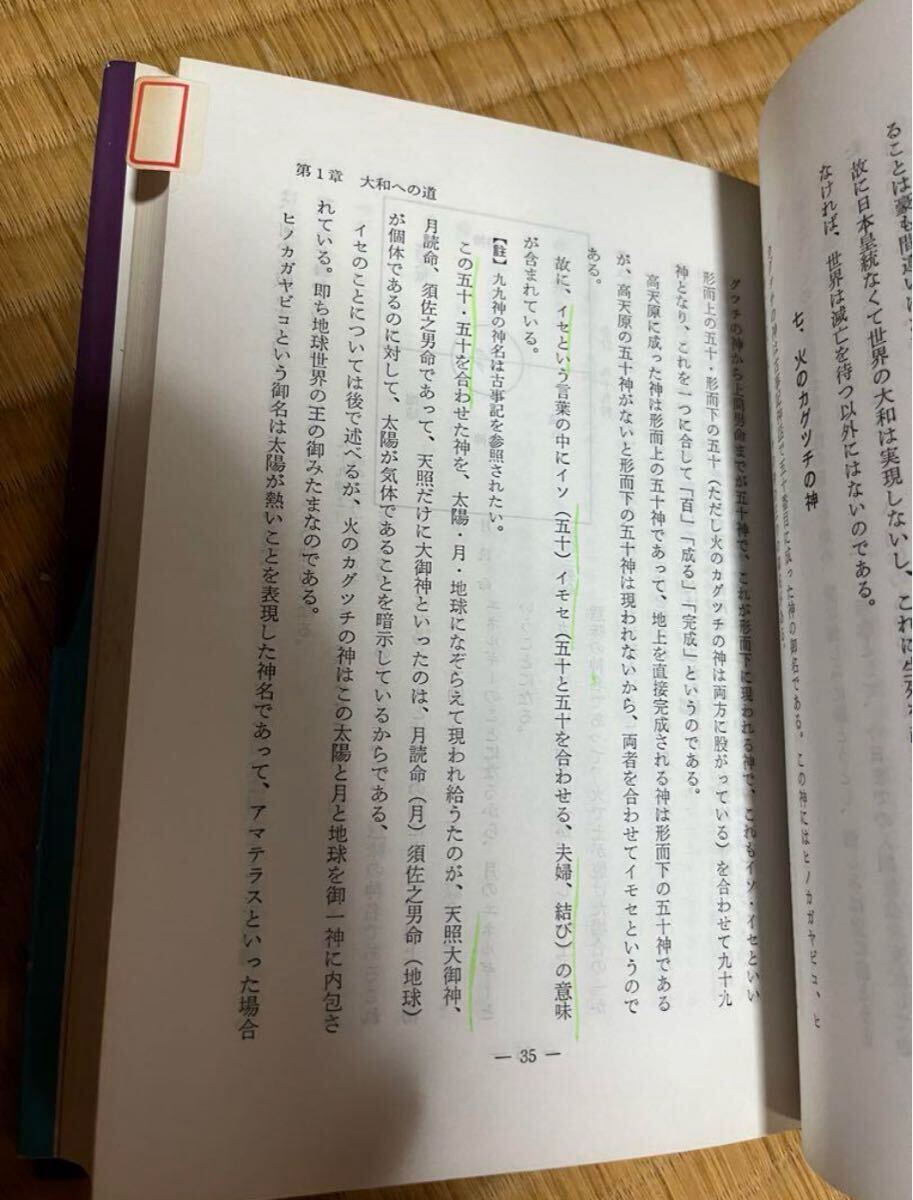 ることは豪も間違いは
故に日本皇統なくて世界の大和は実現しないし、これに生
なければ、世界は滅亡を待つ以外にはないのである。
七、火のカグツチの神
った神の御名である。この神にはヒノカガヤビコ、ヒ
第1章 大和への道
グツチの神から上筒男命までが五十神で、これが形而下に現われる神で、これもイソ・イセといい
形而上の五十・形而下の五十（ただし火のカグツチの神は両方に股がっている）を合わせて九十九
神となり、これを一つに合して「百」「成る」「完成」というのである。
高天原に成った神は形而上の五十神であって、地上を直接完成される神は形而下の五十神である
が、高天原の五十神がないと形而下の五十神は現われないから、両者を合わせてイモセというので
ある。
故に、イセという言葉の中にイソ（五十）イモセ（五十と五十を合わせる、夫婦、結び）の意味
が含まれている。
【註】九九神の神名は古事記を参照されたい。
この五十・五十を合わせた神を、太陽・月・地球になぞらえて現われ給うたのが、天照大御神、
月読命、須佐之男命であって、天照だけに大御神といったのは、月読命（月）須佐之男命（地球）
が個体であるのに対して、太陽が気体であることを暗示しているからである、
イセのことについては後で述べるが、火のカグツチの神はこの太陽と月と地球を御一神に内包さ
れている。即ち地球世界の王の御みたまなのである。
ヒノカガヤビコという御名は太陽が熱いことを表現した神名であって、アマテラスといった場合
— 35 —